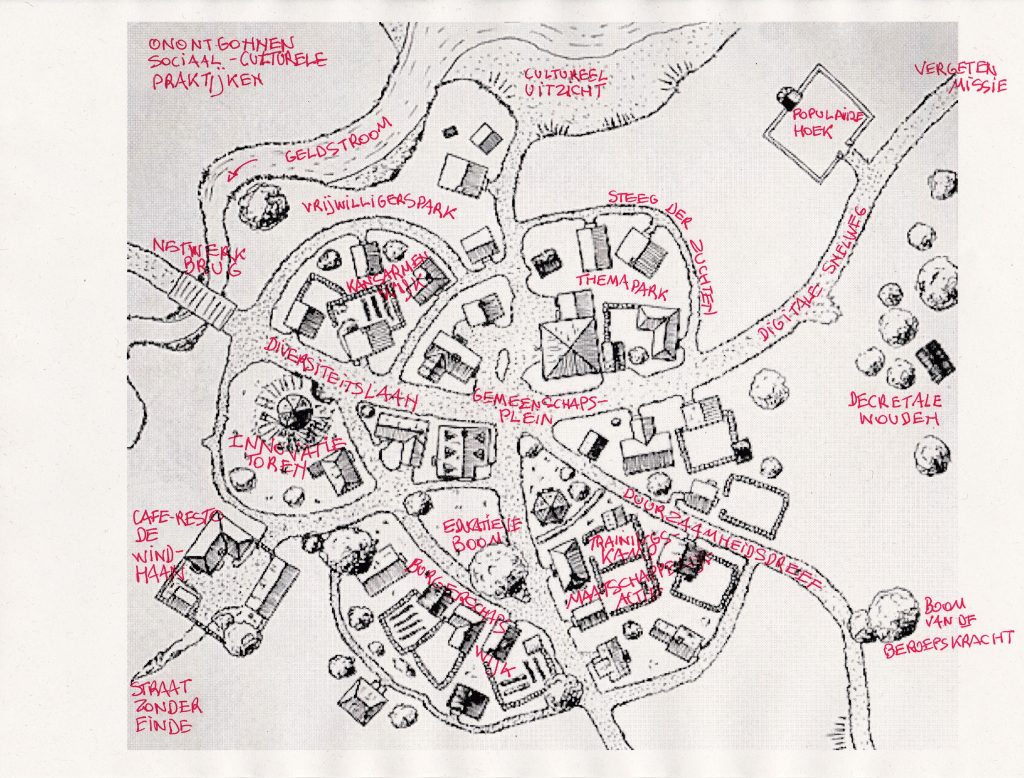 ONONTGONNEN
SOCIAAL-CULTURELE
PRAKTIJKEN
CULTUREEL
UITZICHT
VERGETEN
MISSIE
POPULAIRE
HOEK
GELDSTROOM
VRIJWILLIGERSPARK
STEEG DER ZUCHTEN
NETWERK
BRUG
KANSARMEN
WIJK
THEMAPARK
DIGITALE SNELWEG
DIVERSITEITSLAAN
GEMEENSCHAPS-
PLEIN
DECRETALE
WOUDEN
INNOVATIE
TOREN
CAFE-RESTO
DE
WIND-
HAAN
EDUKATIEVE
BOOM
DUURZAAMHEIDSDREEF
TRAININGS-
KAMP
MAATSCHAPPELIJKE
ACTIE
BURGERSCHAPS
WIJK
BOOM
VAN DE
BEROEPSKRACHT
STRAAT
ZONDER
EINDE